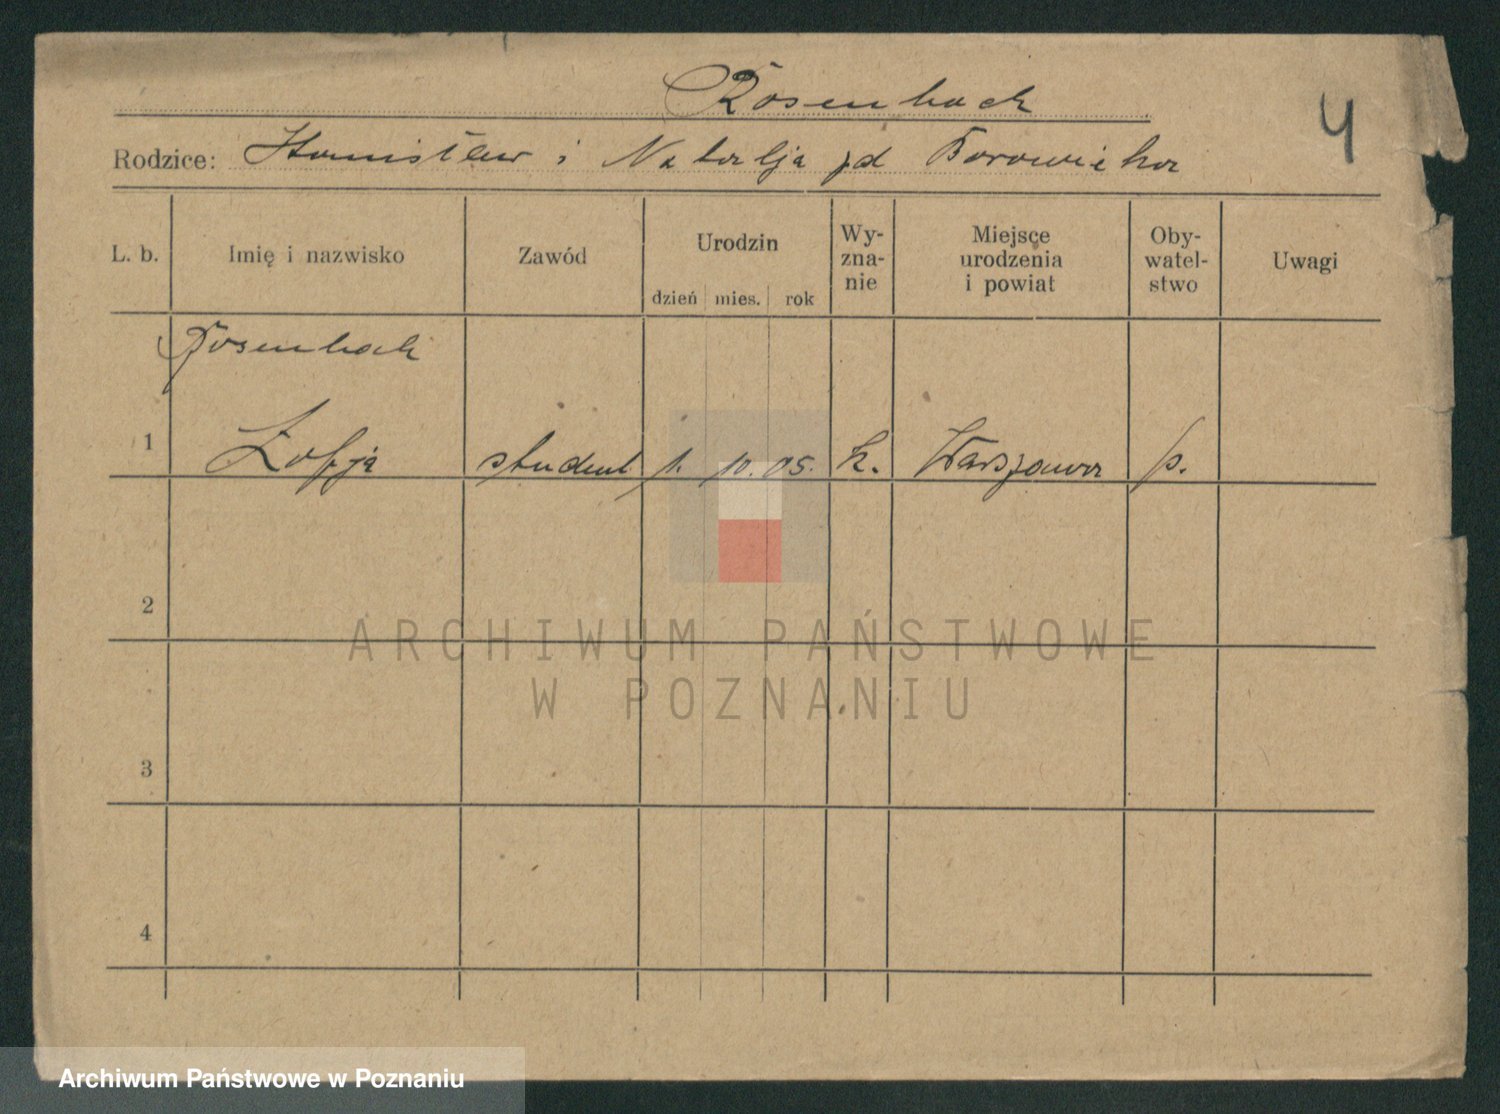 Rosenbach
4
Rodzice: Stanisław i Natalja zd Borowicka
L. b.
Imię i nazwisko
Zawód
Urodzin
dzień mies. rok
Wy-
zna-
nie
Miejsce
urodzenia
i powiat
Oby-
watel-
stwo
Uwagi
Rosenbach
1 Zofja student 1. 10. 05. k. Warszawa p.
2
3
4
ARCHIWUM PAŃSTWOWE
W POZNANIU
Archiwum Państwowe w Poznaniu